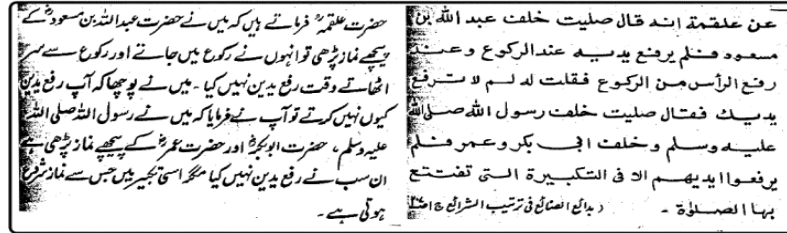 عن علقمة انه قال صليت خلف عبد الله بن
مسعود فلم يرفع يديه عند الركوع وعند
رفع الرأس من الركوع فقلت له لم لا ترفع
يديك فقال صليت خلف رسول الله صلى الله
عليه وسلم وخلف ابي بكر وعمر فلم
يرفعوا ايديهم الا فى التكبيرة التى تفتتح
بها الصلوٰة ۔ (بدائع الصنائع فى ترتيب الشرائع ج
حضرت علقمہؒ فرماتے ہیں کہ میں نے حضرت عبد اللہ بن مسعودؓ کے
پیچھے نماز پڑھی تو انہوں نے رکوع میں جاتے اور رکوع سے سر
اٹھاتے وقت رفع یدین نہیں کیا۔ میں نے پوچھا کہ آپ رفع یدین
کیوں نہیں کرتے تو آپ نے فرمایا کہ میں نے رسول اللہ صلی اللہ
علیہ وسلم، حضرت ابوبکرؓ اور حضرت عمرؓ کے پیچھے نماز پڑھی ہے
ان سب نے رفع یدین نہیں کیا مگر اسی تکبیر میں جس سے نماز شروع
ہوتی ہے۔